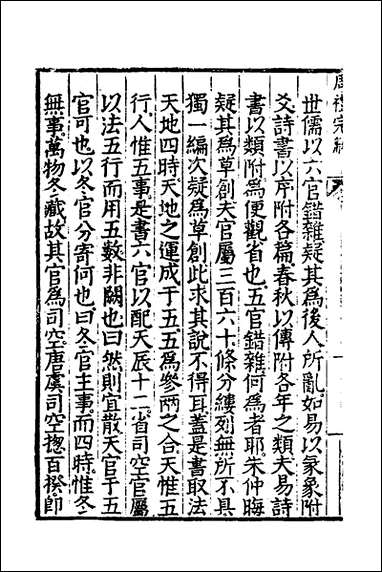 世儒以六官錯雜疑其為後人所亂如易以彖象附
爻詩書以序附各篇春秋以傳附各年之類夫易詩
書以類附為便觀省也五官錯雜何為者耶朱仲晦
疑其為草創夫官屬三百六十條分縷列無所不具
獨一編次疑為草創此求其說不得耳蓋是書取法
天地四時天地之運成于五五為參兩之合天惟五
行人惟五事是書六官以配天辰十二省司空官屬
以法五行而用五數非闕也曰然則宜散天官于五
官可也以冬官分寄何也曰冬官主事而四時惟冬
無事萬物冬藏故其官為司空唐虞司空揔百揆即